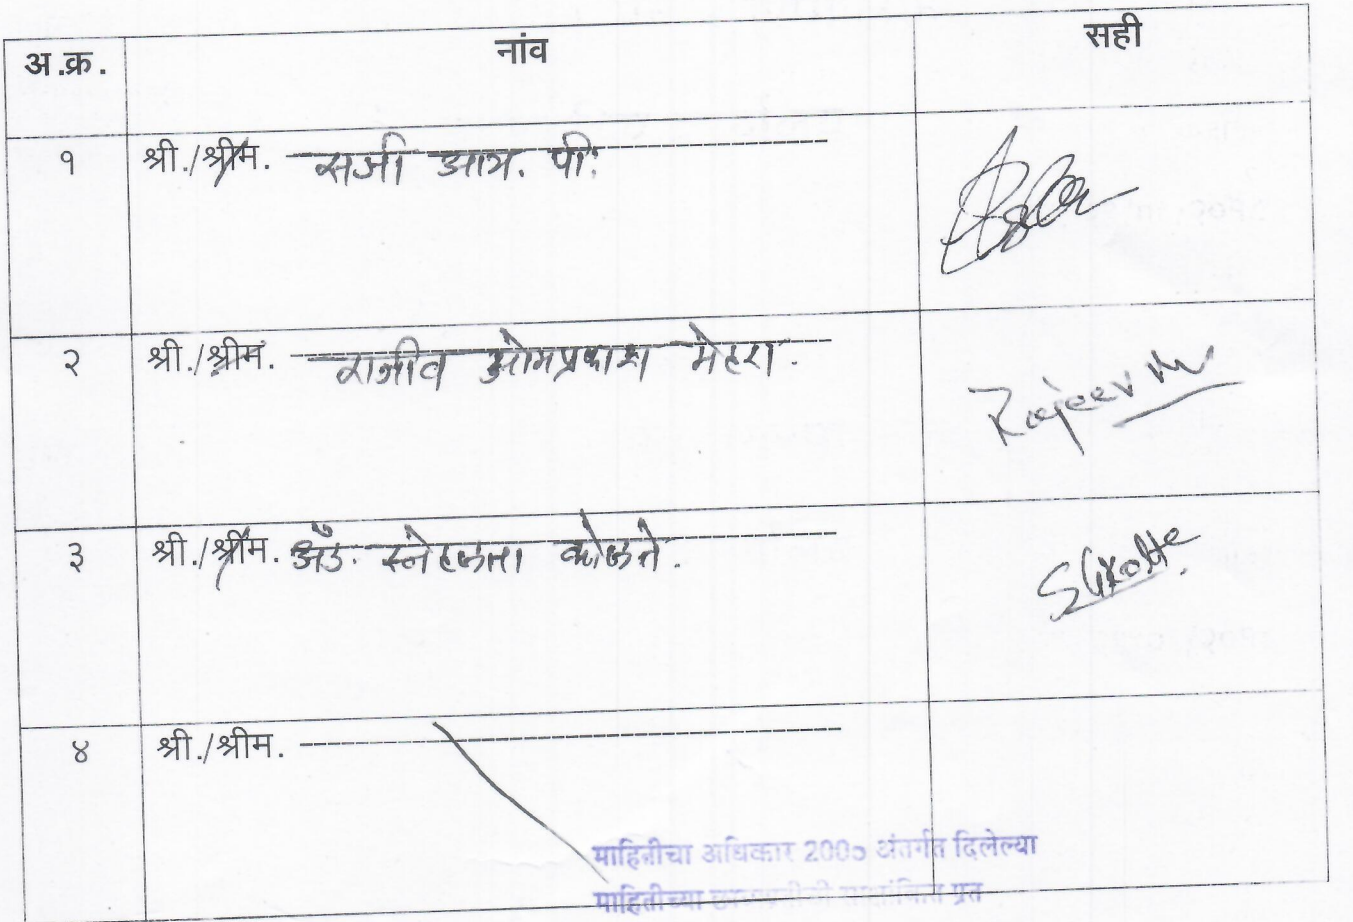 अ.क्र. नांव सही
१ श्री./श्रीम. सजी आर. पी.
२ श्री./श्रीम. राजीव ओमप्रकाश मेहरा. Rajeev M
३ श्री./श्रीम. ॲड. स्नेहलता कोळते.
४ श्री./श्रीम.
माहितीचा अधिकार 200० अंतर्गत दिलेल्या
माहितीच्या प्रत